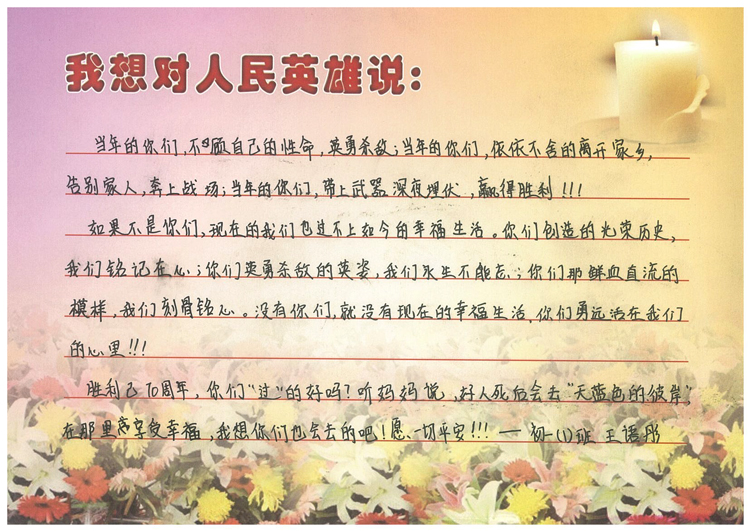 我想对人民英雄说：
当年的你们，不顾自己的性命，英勇杀敌；当年的你们，依依不舍的离开家乡，
告别家人，奔上战场；当年的你们，带上武器深夜埋伏，赢得胜利！！！
如果不是你们，现在的我们也过不上如今的幸福生活。你们创造的光荣历史，
我们铭记在心；你们英勇杀敌的英姿，我们永生不能忘；你们那鲜血直流的
模样，我们刻骨铭心。没有你们，就没有现在的幸福生活，你们勇远活在我们
的心里！！！
胜利已70周年，你们“过”的好吗？听妈妈说，好人死后会去“天蓝色的彼岸”，
在那里享受幸福，我想你们也会去的吧！愿、一切平安！！！— 初一(1)班 王语彤